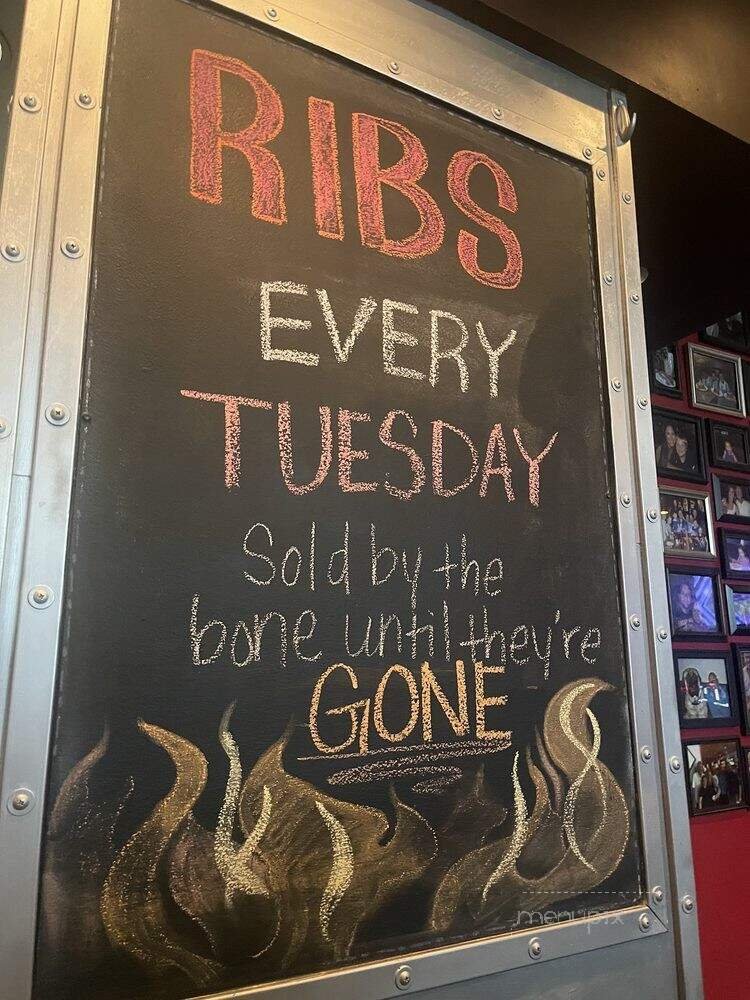 RIBS
EVERY
TUESDAY
Sold by the
bone until they're
GONE
menupix